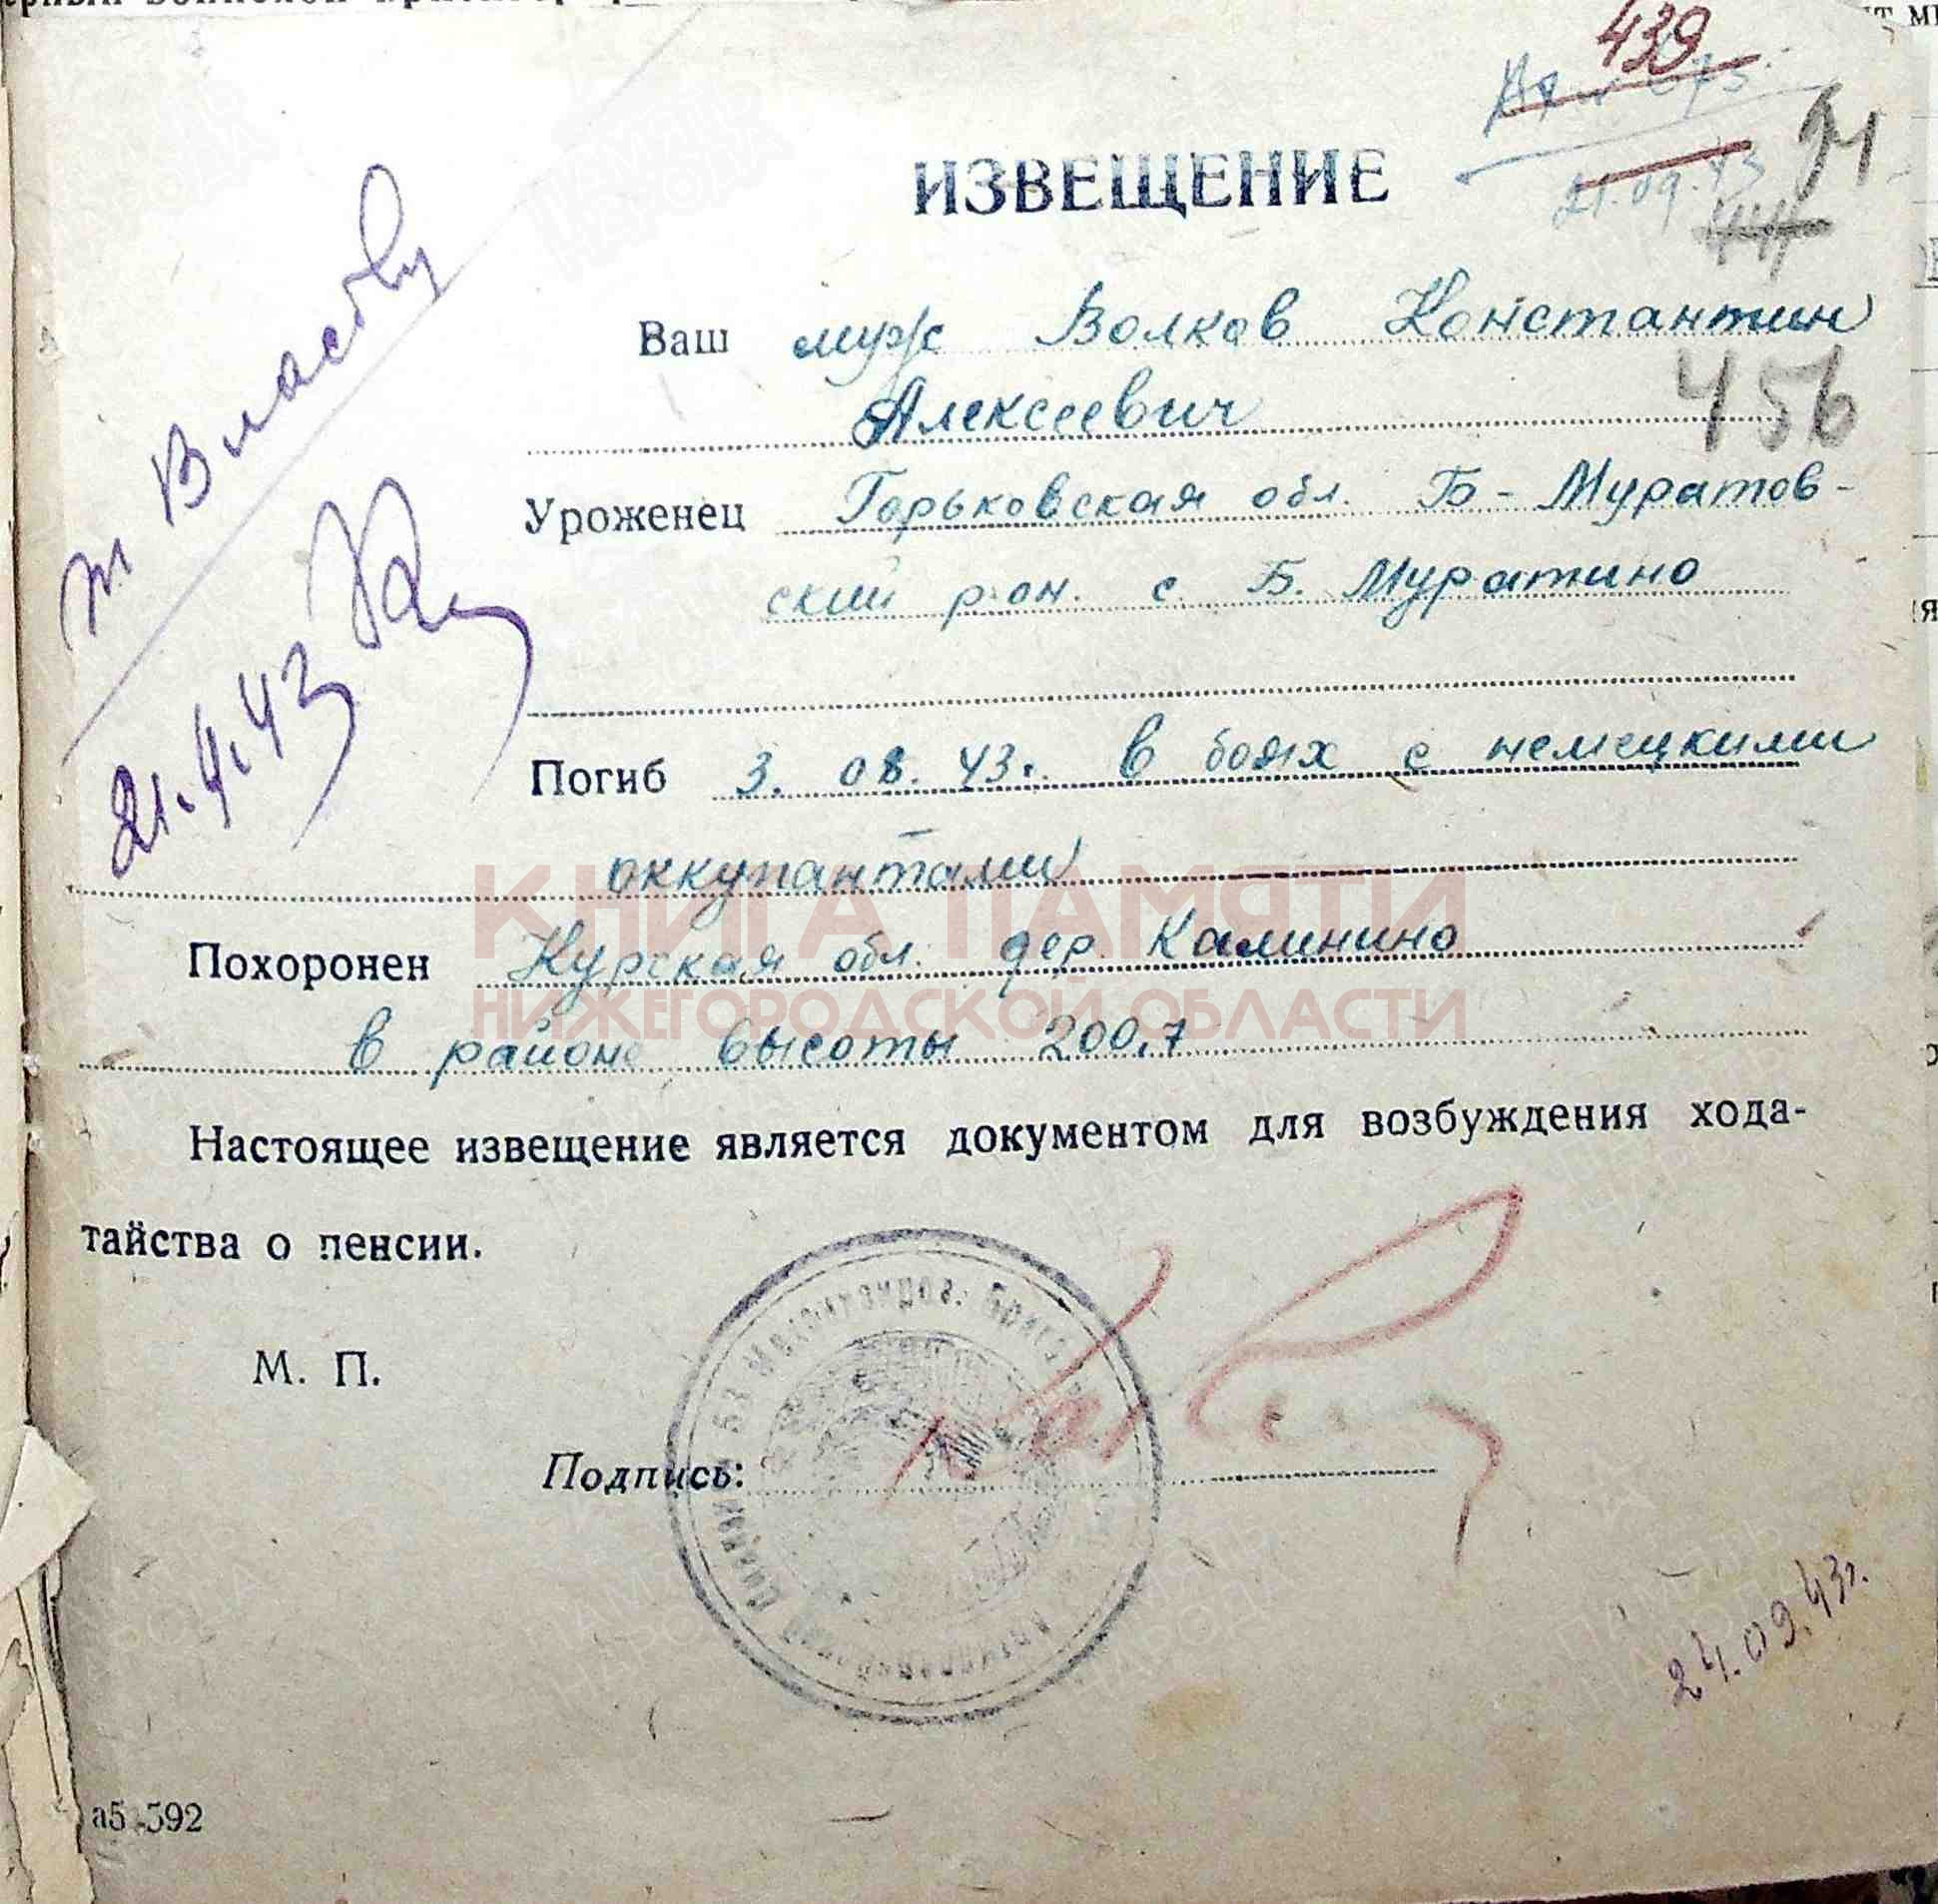 439
21.09.43
94
444
ИЗВЕЩЕНИЕ
т Власову
21.9.43
Ваш муж Волков Константин
Алексеевич
456
Уроженец Горьковская обл. Б-Муратов-
ский р-он. с. Б. Муратино
Погиб 3. 08. 43г. в боях с немецкими
оккупантами
КНИГА ПАМЯТИ
Похоронен Курская обл. дер. Калинино
НИЖЕГОРОДСКОЙ ОБЛАСТИ
в районе высоты 200,7
Настоящее извещение является документом для возбуждения хода-
тайства о пенсии.
М. П.
Подпись:
24.09.43г.
а5